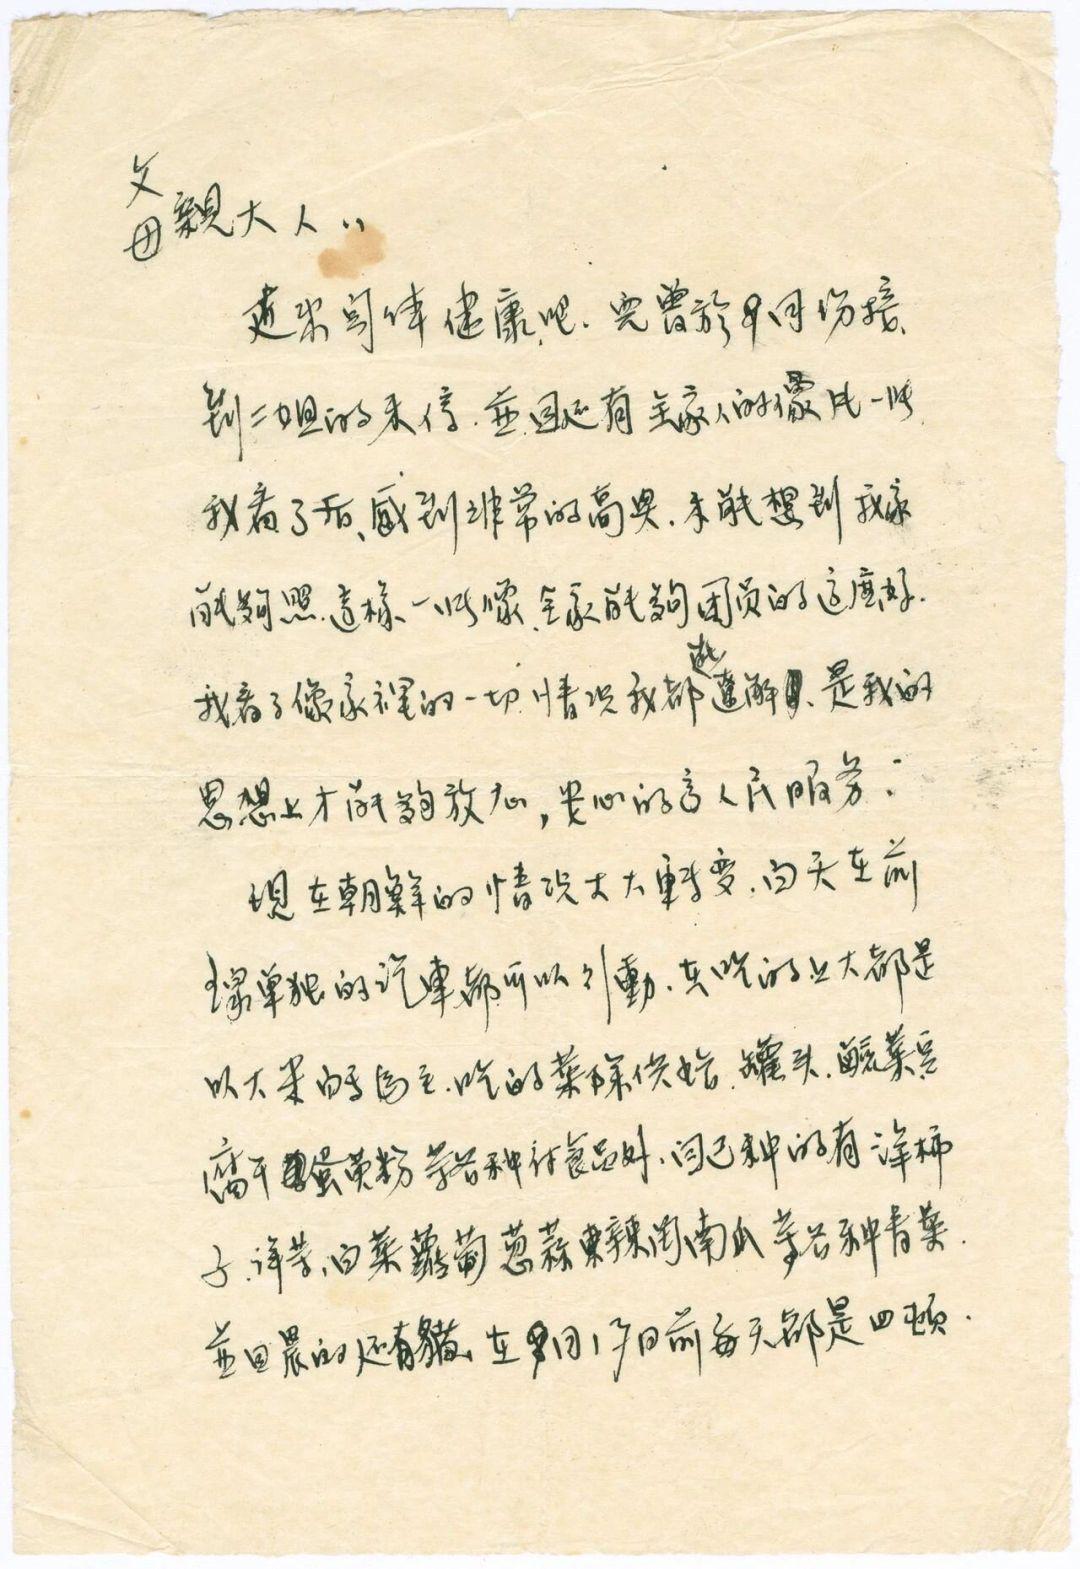 父
母親大人：
近来身体健康吧．児曾於9月份接
到二姐的来信．並且还有全家人的像片一张
我看了后、感到非常的高兴．未能想到我家
能夠照這樣一张像、全家能夠团员的这麽好．
我看了像家裡的一切情况我都 解．是我的
思想上才能夠放心，安心的為人民服务．
現在朝鮮的情况大大轉变．白天在前
線單独的汽車都可以行動．在吃的上大都是
以大米白面为主．吃的菜除供给罐头．鹹菜豆
腐干蛋黄粉等各种付食品外．自己种的有洋柿
子．洋芋、白菜蘿蔔葱蒜辣 南瓜等各种青菜．
並且 的还有猪、在9月1 日前每天都是四顿．